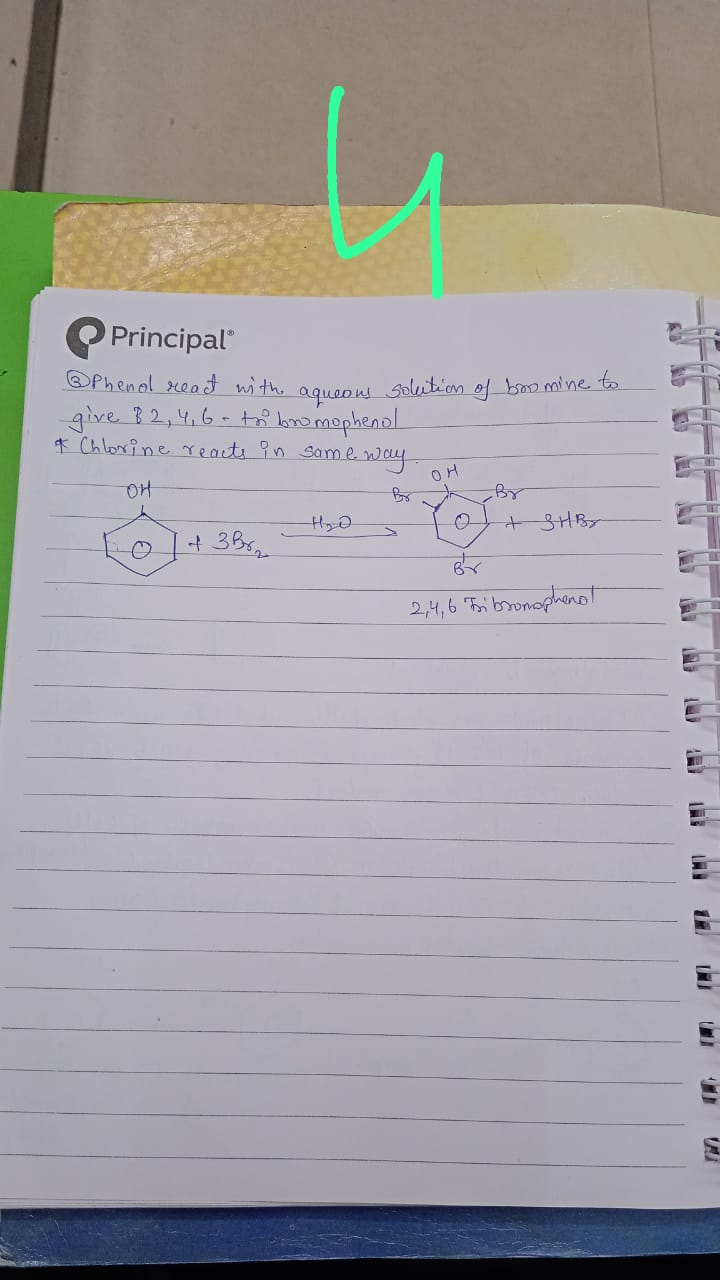 4
Principal®
③ Phenol react with aqueous solution of bromine to
give 2,4,6 - tri bromophenol
* Chlorine reacts in same way
OH
+ 3Br₂
H₂O
OH
Br
Br
Br
+ 3HBr
2,4,6 Tribromophenol